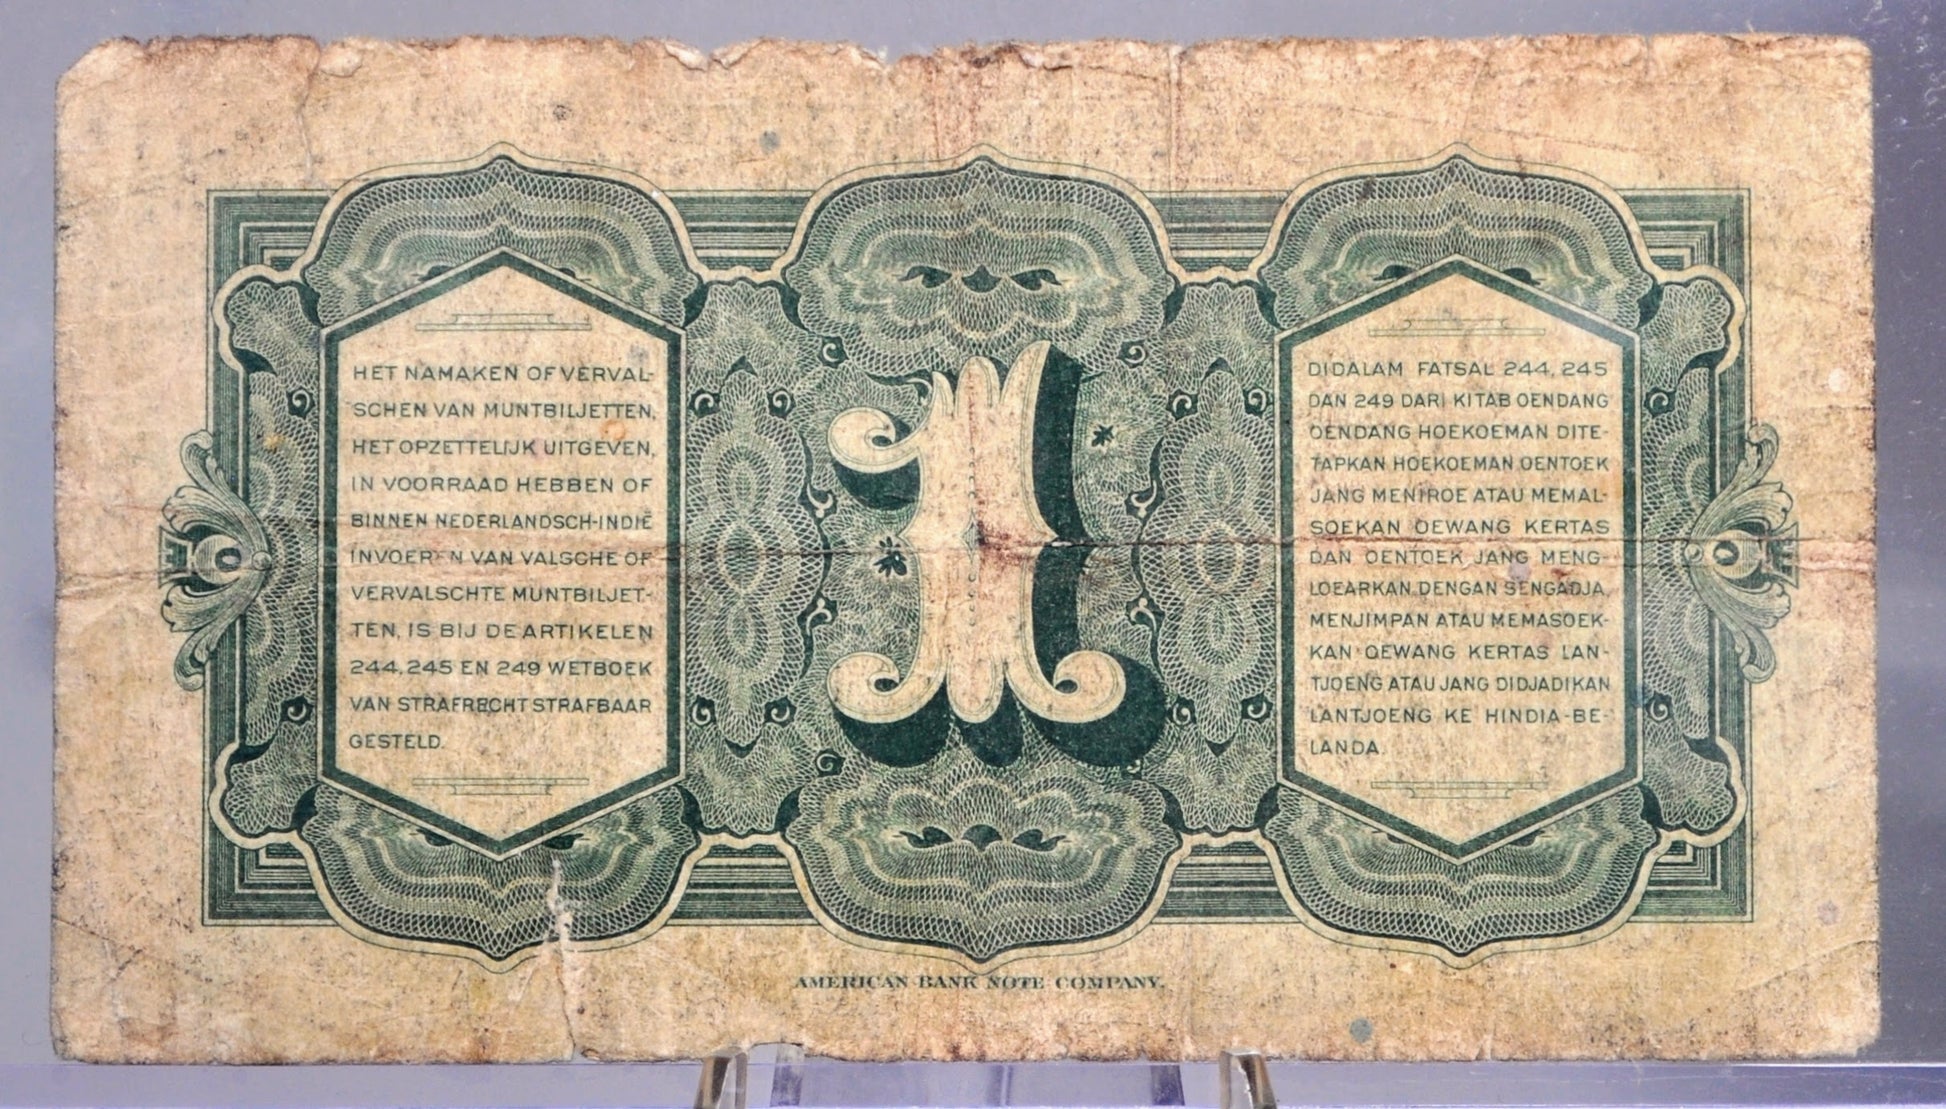 HET NAMAKEN OF VERVAL-
SCHEN VAN MUNTBILJETTEN,
HET OPZETTELIJK UITGEVEN,
IN VOORRAAD HEBBEN OF
BINNEN NEDERLANDSCH-INDIË
INVOEREN VAN VALSCHE OF
VERVALSCHTE MUNTBILJET-
TEN, IS BIJ DE ARTIKELEN
244, 245 EN 249 WETBOEK
VAN STRAFRECHT STRAFBAAR
GESTELD.
1
DIDALAM FATSAL 244, 245
DAN 249 DARI KITAB OENDANG
OENDANG HOEKOEMAN DITE-
TAPKAN HOEKOEMAN OENTOEK
JANG MENIROE ATAU MEMAL-
SOEKAN OEWANG KERTAS
DAN OENTOEK JANG MENG-
LOEARKAN DENGAN SENGADJA,
MENJIMPAN ATAU MEMASOEK-
KAN OEWANG KERTAS LAN-
TJOENG ATAU JANG DIDJADIKAN
LANTJOENG KE HINDIA-BE-
LANDA.
AMERICAN BANK NOTE COMPANY.